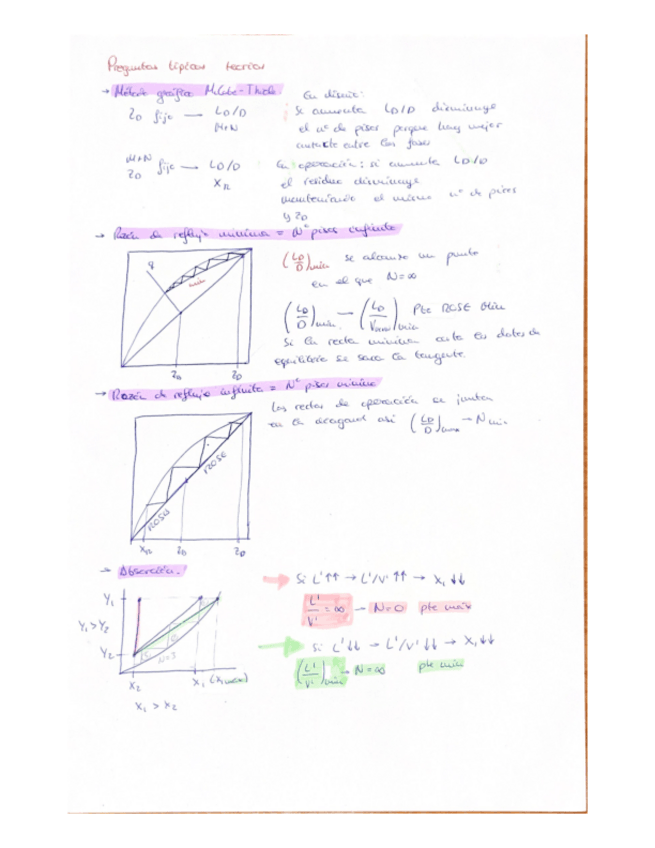 Preguntas típicas teoría
→ Método gráfico McCabe-Thiele
zD fijo → LD/D
M+N
En diseño:
Si aumenta LD/D disminuye
el nº de pisos porque hay mejor
contacto entre las fases
M+N
zD fijo → LD/D
XR
En operación: si aumenta LD/D
el residuo disminuye
manteniendo el mismo nº de pisos
y zD
→ Razón de reflujo mínima = Nº pisos infinito
min
zD
(LD/D)min se alcanza un punto
en el que N=∞
(LD/D)min → (LD/V)min Pte
Si la recta mínima corta los datos de
equilibrio se saca la tangente
→ Razón de reflujo infinita = Nº pisos mínimo
ROSE
ROSA
zD
Las rectas de operación se juntan
en la diagonal así (LD/D) → Nmin
→ Absorción.
Y1
Y1>Y2
Y2
N=3
X2
X1 (X1max)
X1 > X2
→ Si L'↑↑ → L'/V'↑↑ → X1↓↓
L'/V' = ∞ → N=0 pte max
→ Si L'↓↓ → L'/V'↓↓ → X1↓↓
(L'/V')min → N=∞ pte min